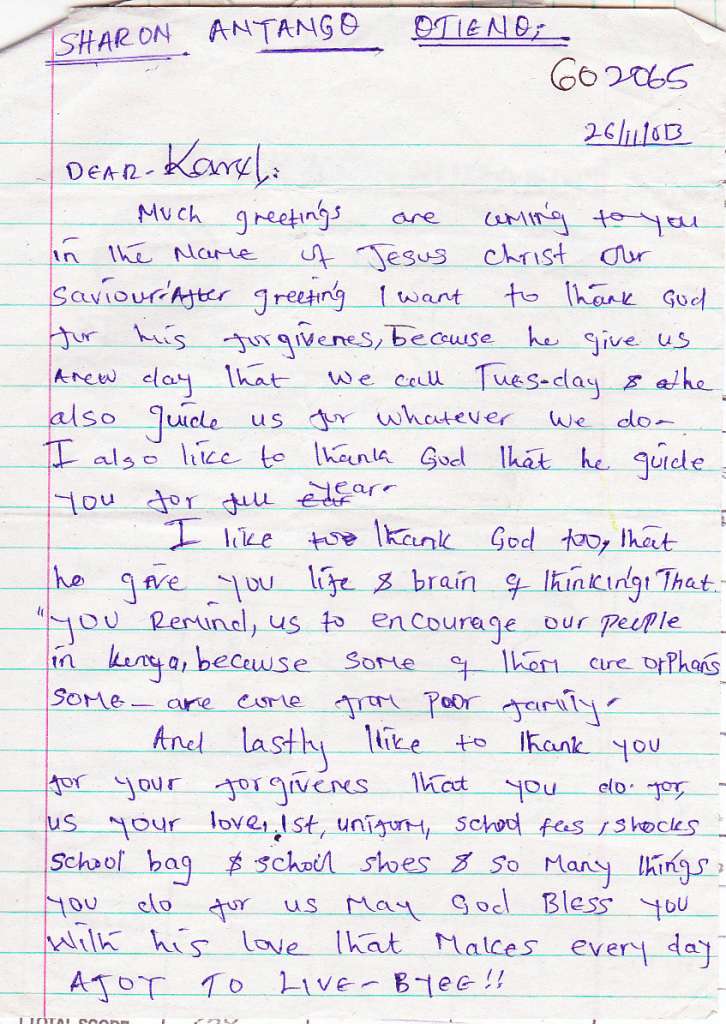 SHARON ANTANGO OTIENO:
602065
26/11/013
DEAR- Karel:
Much greetings are coming to you
in the Name of Jesus Christ Our
Saviour. After greeting I want to thank God
for his forgivenes, because he give us
Anew day that we call Tues-day & the
also guide us for whatever we do-
I also like to thank God that he guide
you for full year-
I like to thank God too, that
he give you life & brain of thinking. That
"you Remind, us to encourage our people
in kenya, because some of them are orphans
some - are come from poor family-
And lastly like to thank you
for your forgivenes that you do. for,
us your love, 1st, uniform, school fees, shocks
school bag & school shoes & so Many things
you do for us May God Bless you
With his love that Makes every day
AJOY TO LIVE - BYEE!!